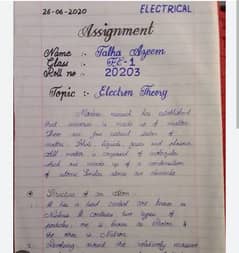 26-06-2020 ELECTRICAL
Assignment
Name :- Talha Azeem
Class :- FE-1
Roll no :- 20203
Topic :- Electron Theory
Modern research has established
that universe is made up of matter.
There are four natural states of
matter. Solids, liquids, gases and plasma.
All matter is composed of molecules
which are made up of a combination
of atoms.
Structure of an atom :-
It has a hard central core known as
Nucleus. It contains two types of
particles; one is known as Proton &
the other is
2. Revolving round the relatively massive